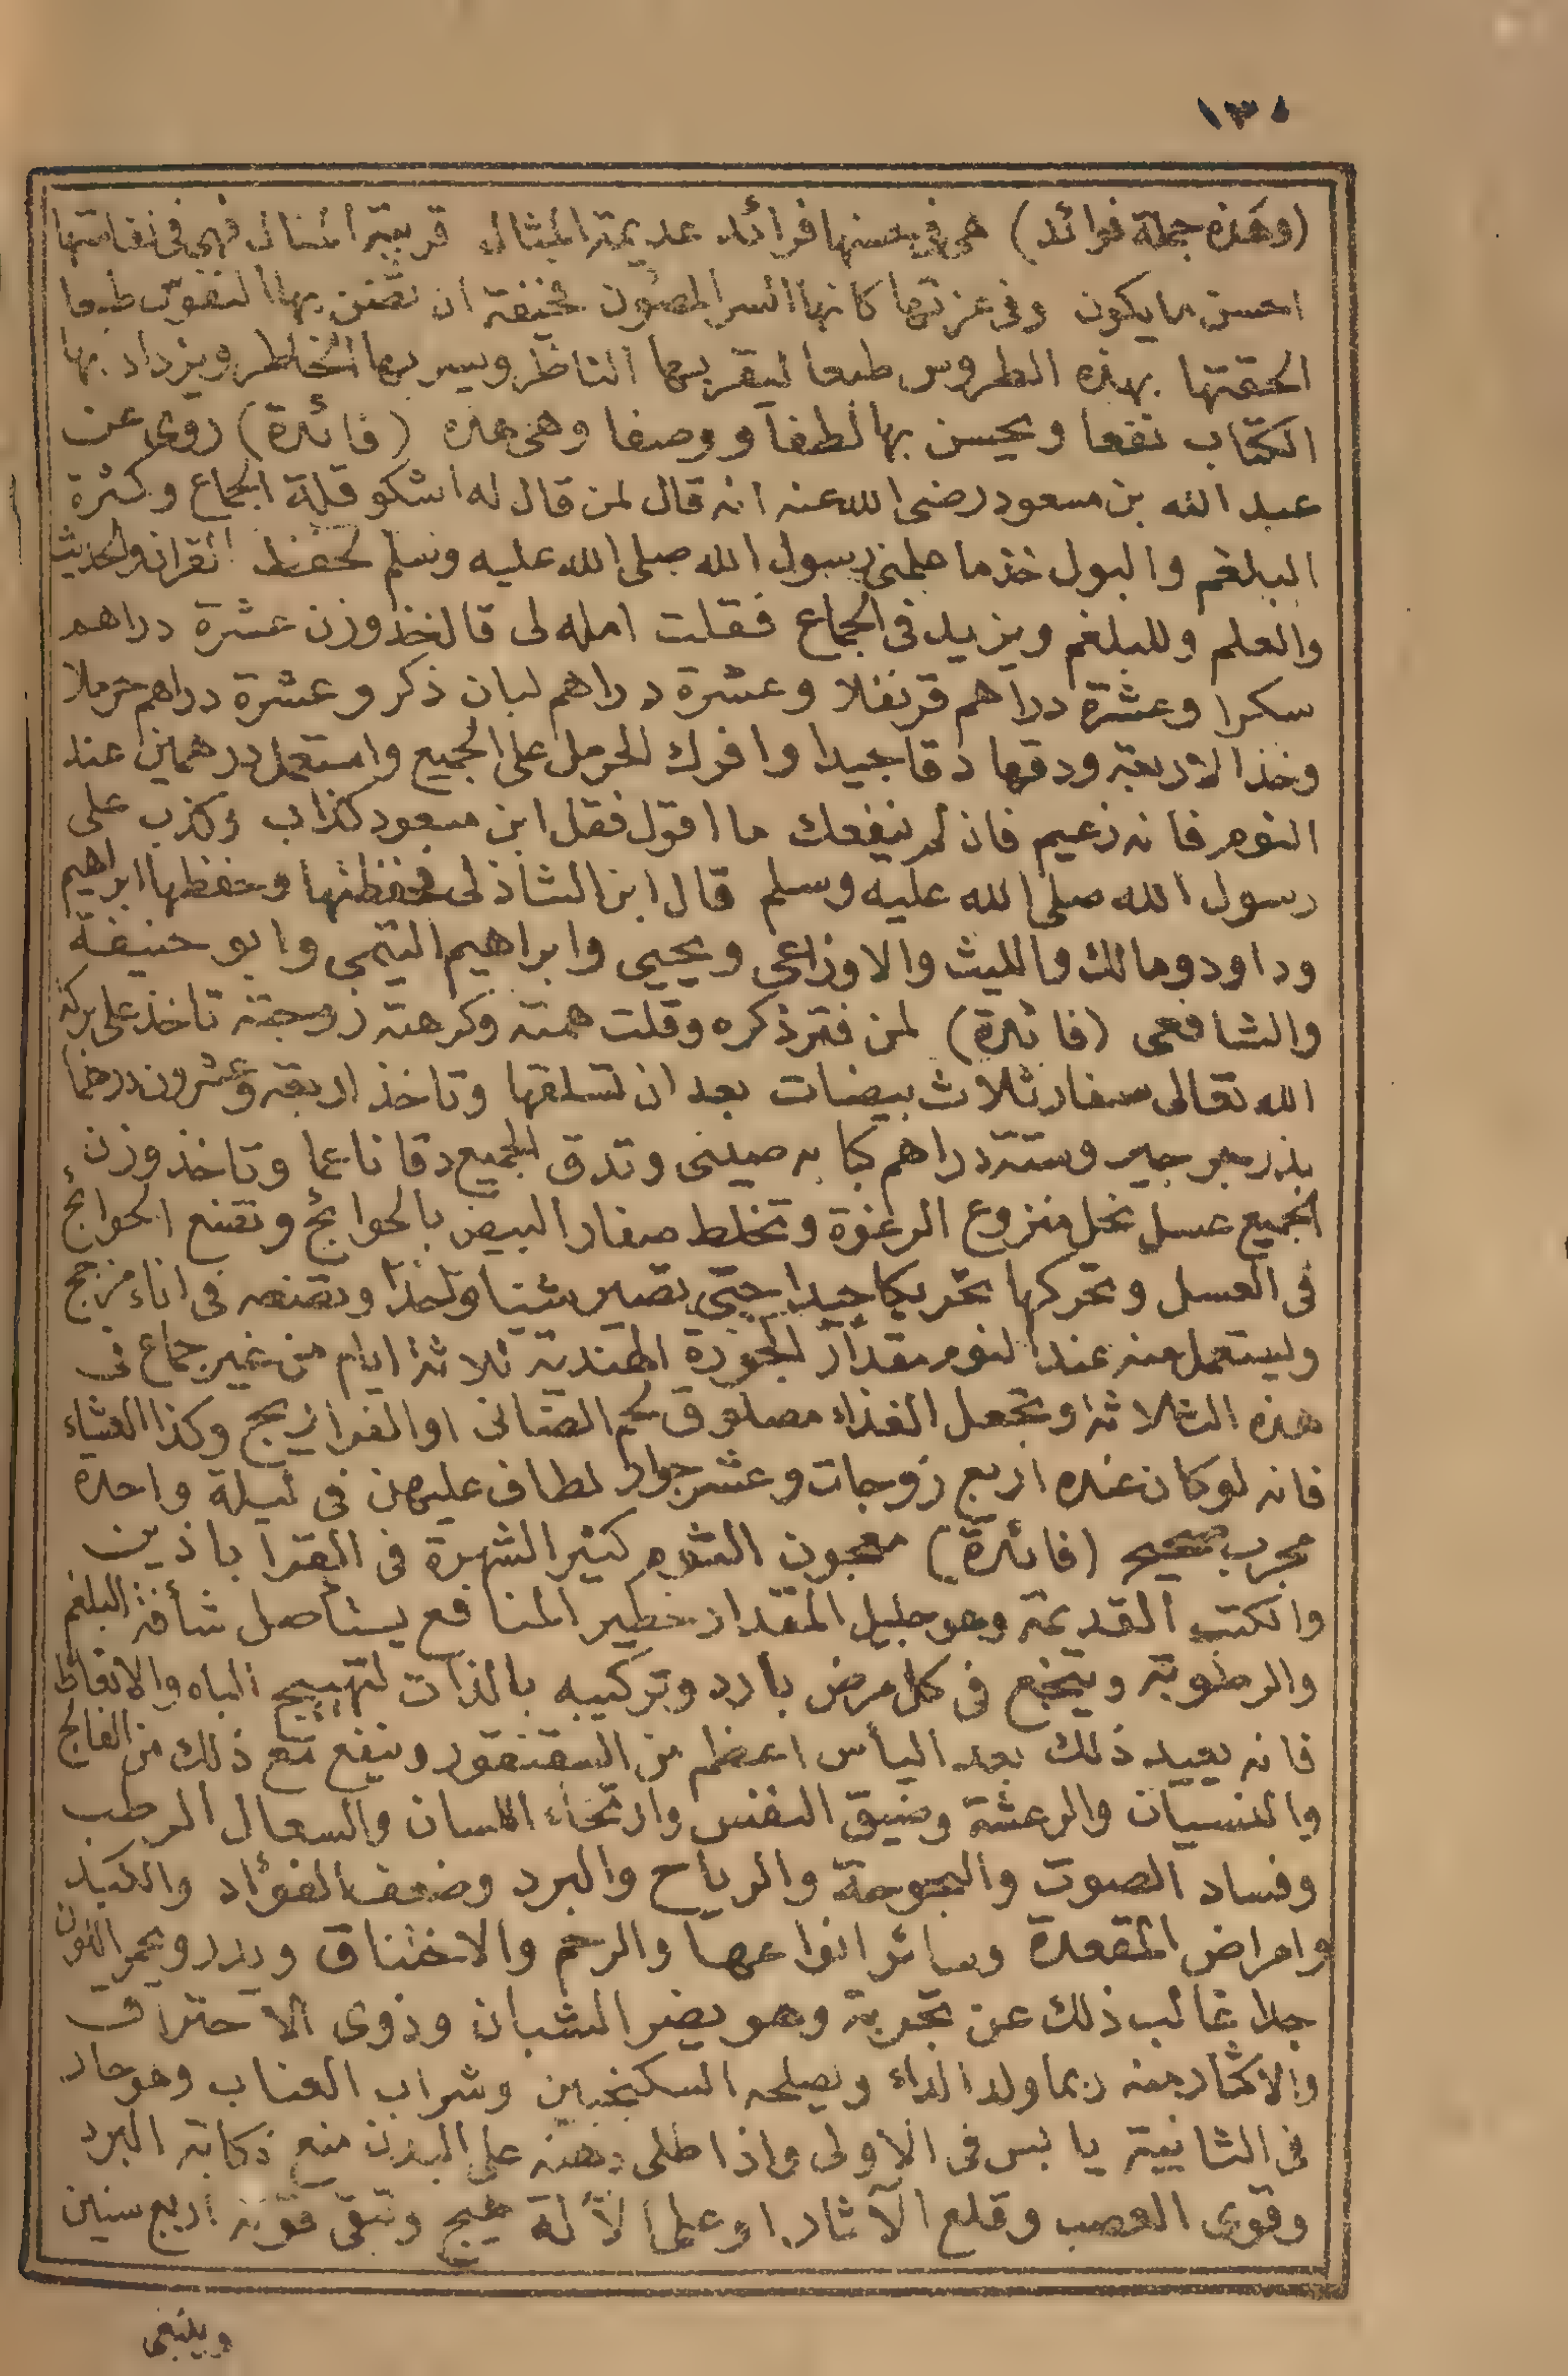 ١٣٠
(وهذه جملة فوائد) هى فى حسنها فرائد عديمة المثال قريبة المنال فهى فى نفاستها
احسن ما يكون وفى عزتها كانها السر المصون فخيفة ان تضن بها النفوس طبعا
الحقتها بهذه الطروس طبعا ليقر بها الناظر ويسر بها الخاطر ويزداد بها
الكتاب نفعا ويحسن بها لطفا ووصفا وهى هذه (فائدة) روى عن
عبد الله بن مسعود رضى الله عنه انه قال لمن قال له اشكو قلة الجماع وكثرة
البلغم والبول خذ ما علمنى رسول الله صلى الله عليه وسلم لحفظ القران والحديث
والعلم وللبلغم ويزيد فى الجماع فقلت امله لى قال خذ وزن عشرة دراهم
سكرا وعشرة دراهم قرنفلا وعشرة دراهم لبان ذكر وعشرة دراهم حرملا
وخذ الاربعة ودقها دقا جيدا وافرك الحرمل على الجميع واستعمل درهمين عند
النوم فانه زعيم فان لم ينفعك ما اقول فقل ابن مسعود كذاب وكذب على
رسول الله صلى الله عليه وسلم قال ابن الشاذلى فحفظتها وحفظها ابراهيم
وداود ومالك والليث والاوزاعى ويحيى وابراهيم التيمى وابو حنيفة
والشافعى (فائدة) لمن فتر ذكره وقلت همته وكرهته زوجته تاخذ على بركة
الله تعالى صفار ثلاث بيضات بعد ان تسلقها وتاخذ اربعة وعشرون درهما
بذر جرجير وستة دراهم كبابه صينى وتدق الجميع دقا ناعما وتاخذ وزن
الجميع عسل نحل منزوع الرغوة وتخلط صفار البيض بالحوائج وتضع الحوائج
فى العسل وتحركها تحريكا جيدا حتى تصير شيئا واحدا وتضعه فى اناء مزجج
وليستعمل منه عند النوم مقدار الجوزة الهندية ثلاثة ايام من غير جماع فى
هذه الثلاثة وتجعل الغذاء مصلوق لحم الضانى او الفراريج وكذا العشاء
فانه لو كان عنده اربع زوجات وعشر جوار لطاف عليهن فى ليلة واحدة
مجرب صحيح (فائدة) معجون الثوم كثير الشهرة فى القراباذين
والكتب القديمة وهو جليل المقدار خطير المنافع يستأصل شأفة البلغم
والرطوبة وينجع فى كل مرض بارد وتركيبه بالذات لتهييج الباه والانعاظ
فانه يعيد ذلك بعد اليأس اعظم من السقنقور وينفع مع ذلك من الفالج
والنسيان والرعشة وضيق النفس وارتخاء اللسان والسعال الرطب
وفساد الصوت والبحوحة والرياح والبرد وضعف الفؤاد والكبد
وامراض المقعدة وسائر انواعها والرحم والاختناق ويدر ويحمر اللون
جدا غالب ذلك عن تجربة وهو يضر الشبان وذوى الاحتراق
والاكثار منه ربما ولد الداء ويصلحه السكنجبين وشراب العناب وهو حار
فى الثانية يابس فى الاولى واذا طلى دهنه على البدن منع نكاية البرد
وقوى العصب وقلع الآثار او على الآلة هيج وتبقى قوته اربع سنين
وينبغى